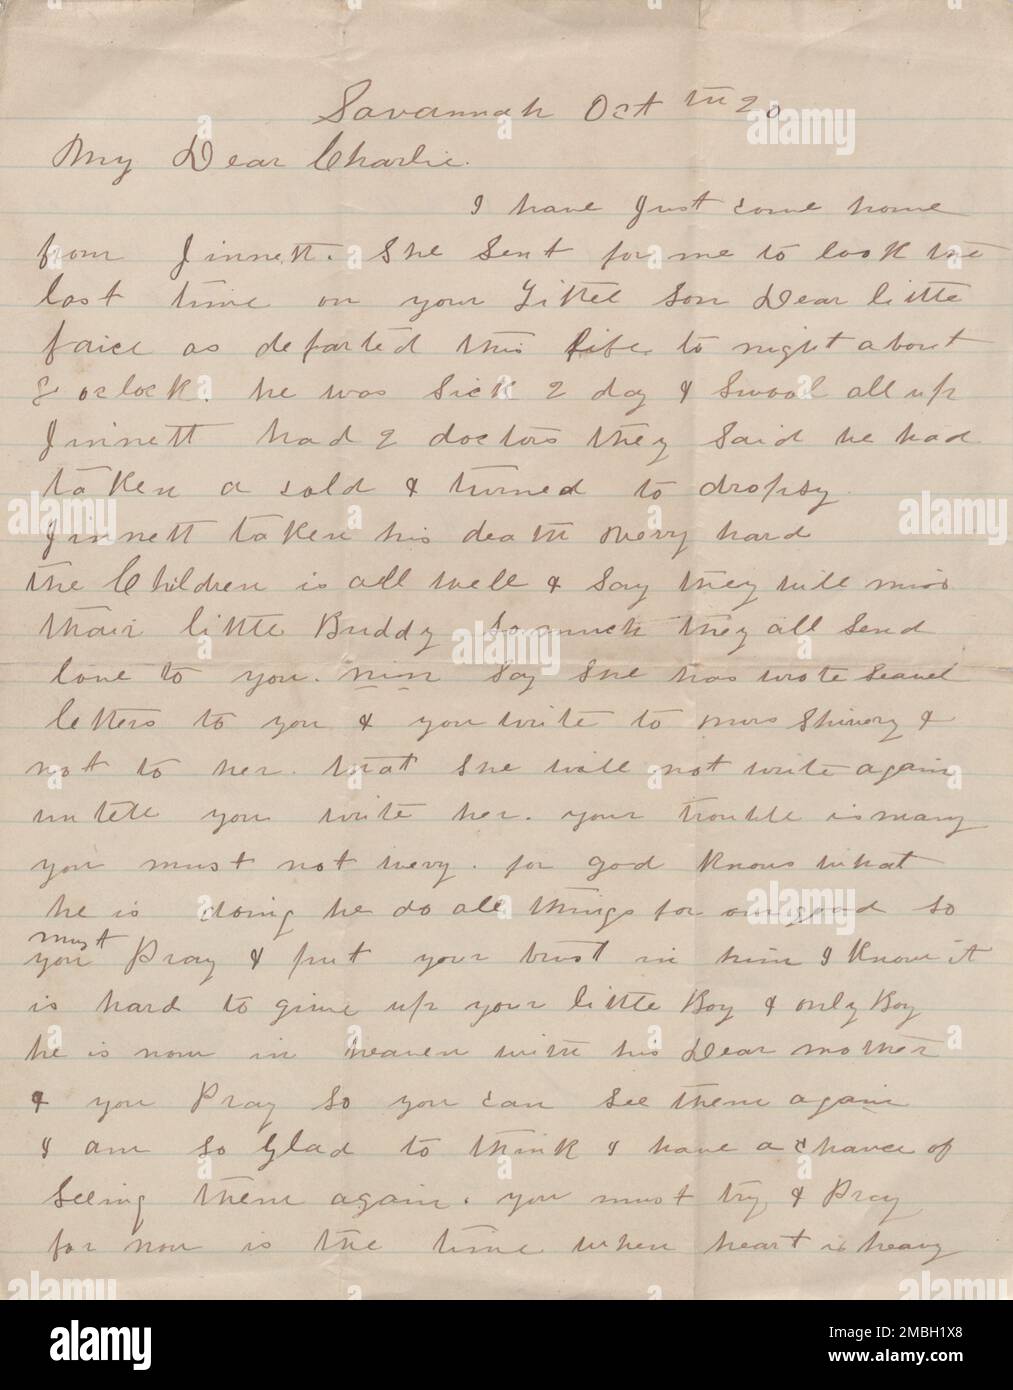 Savannah Oct th 20
My Dear Charlie.
I have Just come home
from Jinnett. She Sent for me to look the
last time on your Littel Son Dear little
faice as departed this Life to night about
8 oclock. he was Sick 2 day & Swool all up
Jinnett had 2 doctors they Said he had
taken a cold & turned to dropsy
Jinnett taken his death very hard
the Children is all well & Say they will miss
thair little Buddy So much they all Send
love to you. Nin Say She has wrote Seavel
letters to you & you write to mrs Shivery &
not to her. that She will not write again
untell you write her. your trouble is many
you must not wery. for god knows what
he is doing he do all things for our good so
must
you Pray & put your trust in him I Know it
is hard to give up your little Boy & only Boy
he is now in heaven with his Dear mother
& you Pray so you can see them again
I am so Glad to think I have a chance of
Seeing them again. you must try & Pray
for now is the time when heart is heavy
alamy
Image ID: 2MBH1X8
www.alamy.com